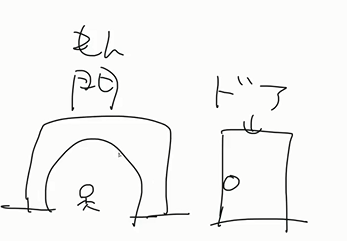 もん
門
ドア